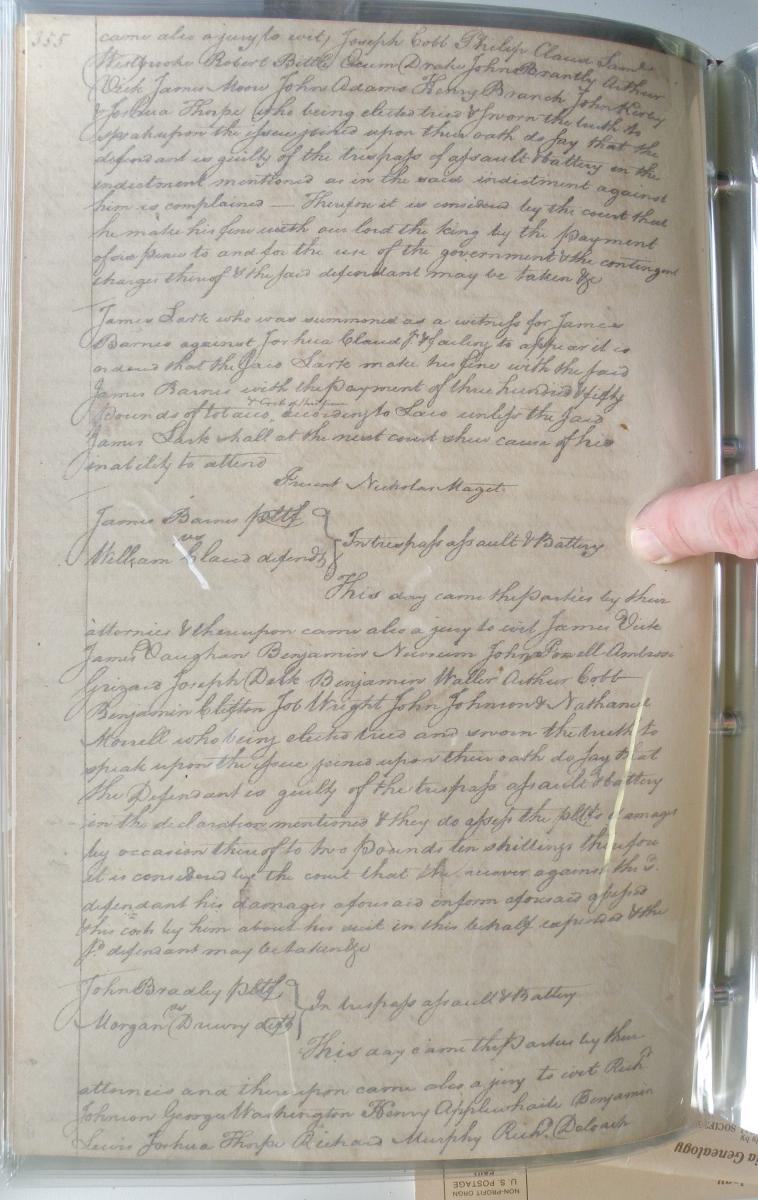 355
came also a jury to wit, Joseph Cobb Philip Claud Saml
Westbrooke Robert Bittle Ocum Drake John Brantly Arthur
Vick James Moore John Adams Henry Branch John Kirby
& Joshua Thorpe who being elected tried & sworn the truth to
speak upon the issue joined upon their oath do say that the
defendant is guilty of the trespass of assault & battery in the
indictment mentioned as in the said indictment against
him is complained — Therefore it is considered by the court that
he make his fine with our lord the king by the payment
of six pence to and for the use of the government & the contingent
charges thereof & the said defendant may be taken &c
James Lark who was summoned as a witness for James
Barnes against Joshua Claud Jr & failing to appear it is
ordered that the said Lark make his fine with the said
James Barnes with the payment of three hundred & fifty
pounds of tobacco, according to Law unless the said
James Lark shall at the next court shew cause of his
inability to attend
Present Nicholas Maget
James Barnes pltf
vs
William Claud defendt
In trespass assault & Battery
This day came the parties by their
attornies & thereupon came also a jury to wit James Vick
James Vaughan Benjamin Newsum John Powell Ambrose
Grizard Joseph Delk Benjamin Waller Arthur Cobb
Benjamin Clifton Job Wright John Johnson & Nathaniel
Morrell who being elected tried and sworn the truth to
speak upon the issue joined upon their oath do say that
the Defendant is guilty of the trespass assault & battery
in the declaration mentioned & they do assess the pltfs damages
by occasion thereof to two pounds ten shillings therefore
it is considered by the court that the recover against the sd.
defendant his damages aforesaid in form aforesaid assessed
& his costs by him about his suit in this behalf expended & the
sd. defendant may be taken &c
John Bradley pltf
vs
Morgan Drewry deft
In trespass assault & Battery
This day came the Parties by their
attorneis and thereupon came also a jury to wit Richd
Johnson George Washington Henry Applewhaite Benjamin
Lewis Joshua Thorpe Richard Murphy Richd. Deloach
NON-PROFIT ORGN
U.S. POSTAGE
PAID
ia Genealogy
SOCIE